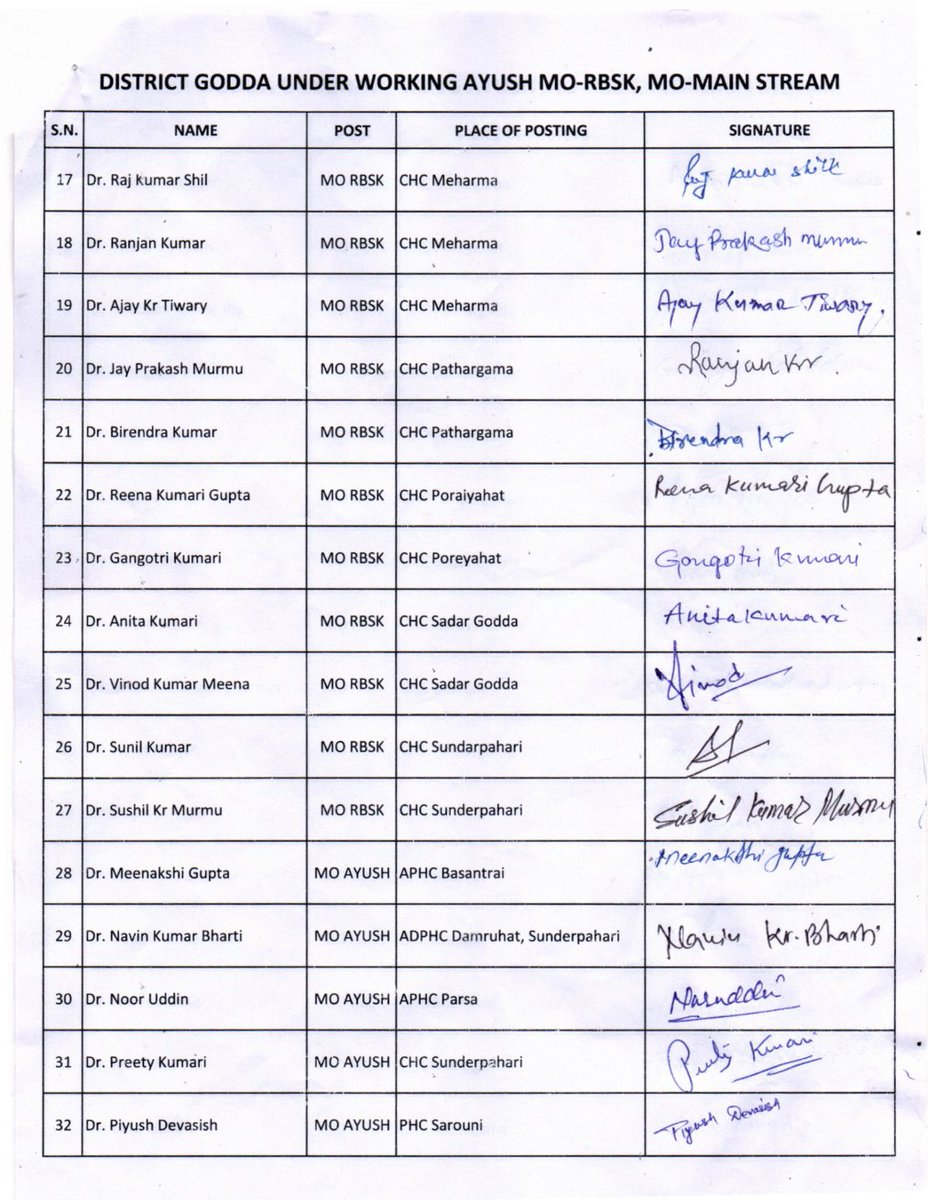 DISTRICT GODDA UNDER WORKING AYUSH MO-RBSK, MO-MAIN STREAM
S.N. NAME POST PLACE OF POSTING SIGNATURE
17 Dr. Raj Kumar Shil MO RBSK CHC Meharma
18 Dr. Ranjan Kumar MO RBSK CHC Meharma Jay Prakash Murmu
19 Dr. Ajay Kr Tiwary MO RBSK CHC Meharma Ajay Kumar Tiwary
20 Dr. Jay Prakash Murmu MO RBSK CHC Pathargama Ranjan Kr.
21 Dr. Birendra Kumar MO RBSK CHC Pathargama Birendra Kr
22 Dr. Reena Kumari Gupta MO RBSK CHC Poraiyahat Reena Kumari Gupta
23 Dr. Gangotri Kumari MO RBSK CHC Poreyahat Gangotri Kumari
24 Dr. Anita Kumari MO RBSK CHC Sadar Godda Anita Kumari
25 Dr. Vinod Kumar Meena MO RBSK CHC Sadar Godda Vinod
26 Dr. Sunil Kumar MO RBSK CHC Sundarpahari
27 Dr. Sushil Kr Murmu MO RBSK CHC Sunderpahari Sushil Kumar Murmu
28 Dr. Meenakshi Gupta MO AYUSH APHC Basantrai Meenakshi gupta
29 Dr. Navin Kumar Bharti MO AYUSH ADPHC Damruhat, Sunderpahari Navin Kr. Bharti
30 Dr. Noor Uddin MO AYUSH APHC Parsa
31 Dr. Preety Kumari MO AYUSH CHC Sunderpahari Preety Kumari
32 Dr. Piyush Devasish MO AYUSH PHC Sarouni Piyush Devasish